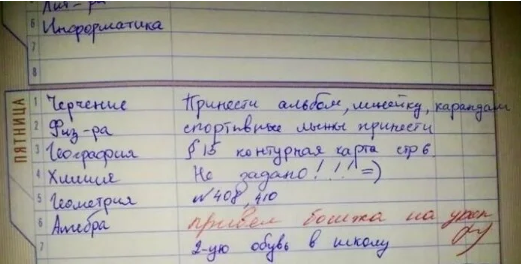 Лит-ра
6 Информатика
7
8
ПЯТНИЦА
1 Черчение Принести альбом, линейку, карандаш
2 Физ-ра спортивные лыжи принести
3 География § 15 контурная карта стр 6
4 Химия Не задано!!!! =)
5 Геометрия №408, 410
6 Алгебра привел бомжа на урок
7 2-ую обувь в школу